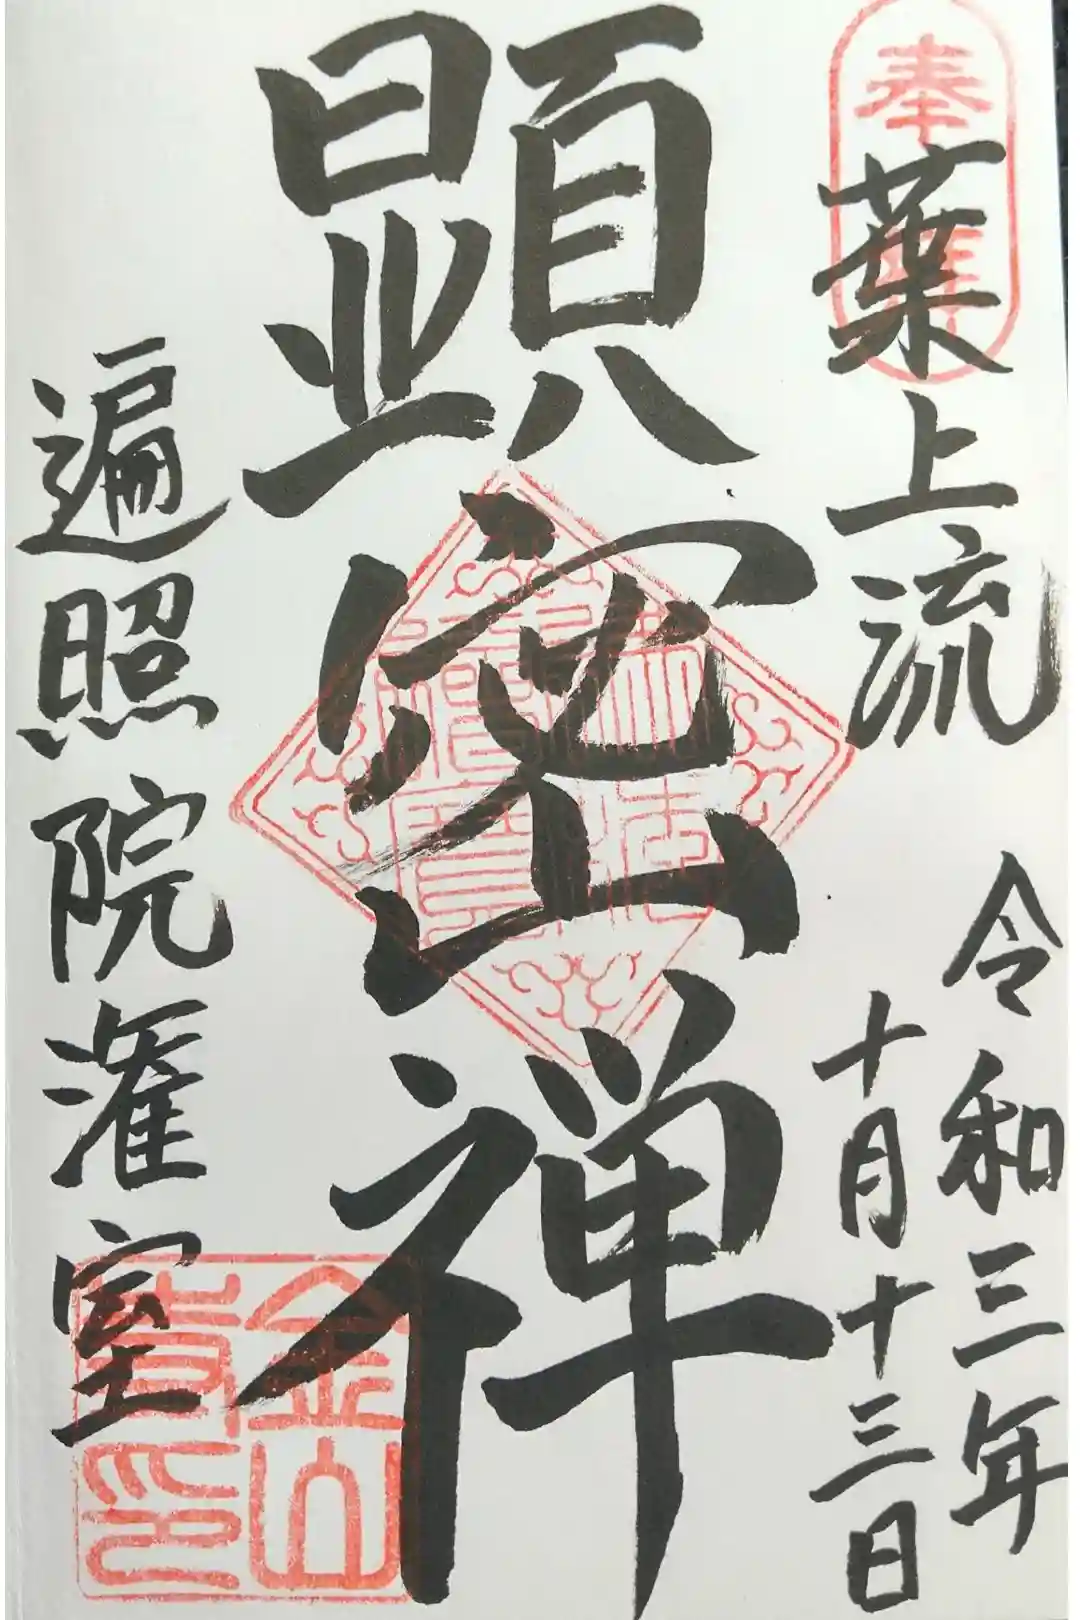 奉
葉上流
令和三年
十月十三日
顕密禅
遍照院灌室
金山寺印